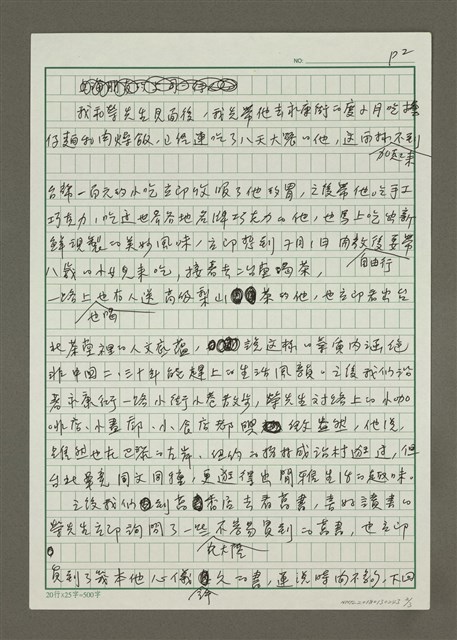 NO.
P2
我和學先生見面後,我先帶他去永康街的度小月吃擔
仔麵和肉燥飯,已經連吃了八天大餐的他,這兩樣不到
加起來
台幣一百元的小吃立即收服了他的胃,之後帶他吃手工
巧克力,吃過世界各地名牌巧克力的他,也馬上吃出新
鮮現製的美妙風味,立即想到7月1日 後要帶
自由行
八歲的小女兒來吃,接著去二台喝茶,
一路上也有人送高級梨山茶的他,也立即看出台
也喝
北茶堂裡的人文底蘊,說這樣的 內涵絕
非中國二、三十年能趕上的生活風貌。之後我們沿
著永康街一路小街小巷散步,學先生對路上的小咖
啡店、小畫廊、小食店都興致盎然,他說
雖然也在巴黎的左岸、紐約的格林威治村逛過,但
台北畢竟同文同種,更逛得出閒暇生活的趣味。
之後我們到舊香居去看舊書,喜好讀書的
學先生立即詢問了一些不容易買到的舊書,也立即
在大陸
買到了幾本他心儀久的書,還說時間不夠,下回
許
20行×25字=500字